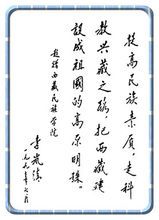 提高民族素质，走科
教兴藏之路，把西藏建
设成祖国的高原明珠。
赵西藏民族学院
李岚清
一九九八年七月